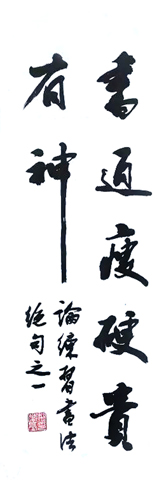 書通瘦硬貴
有神
論練習書法
絕句之一